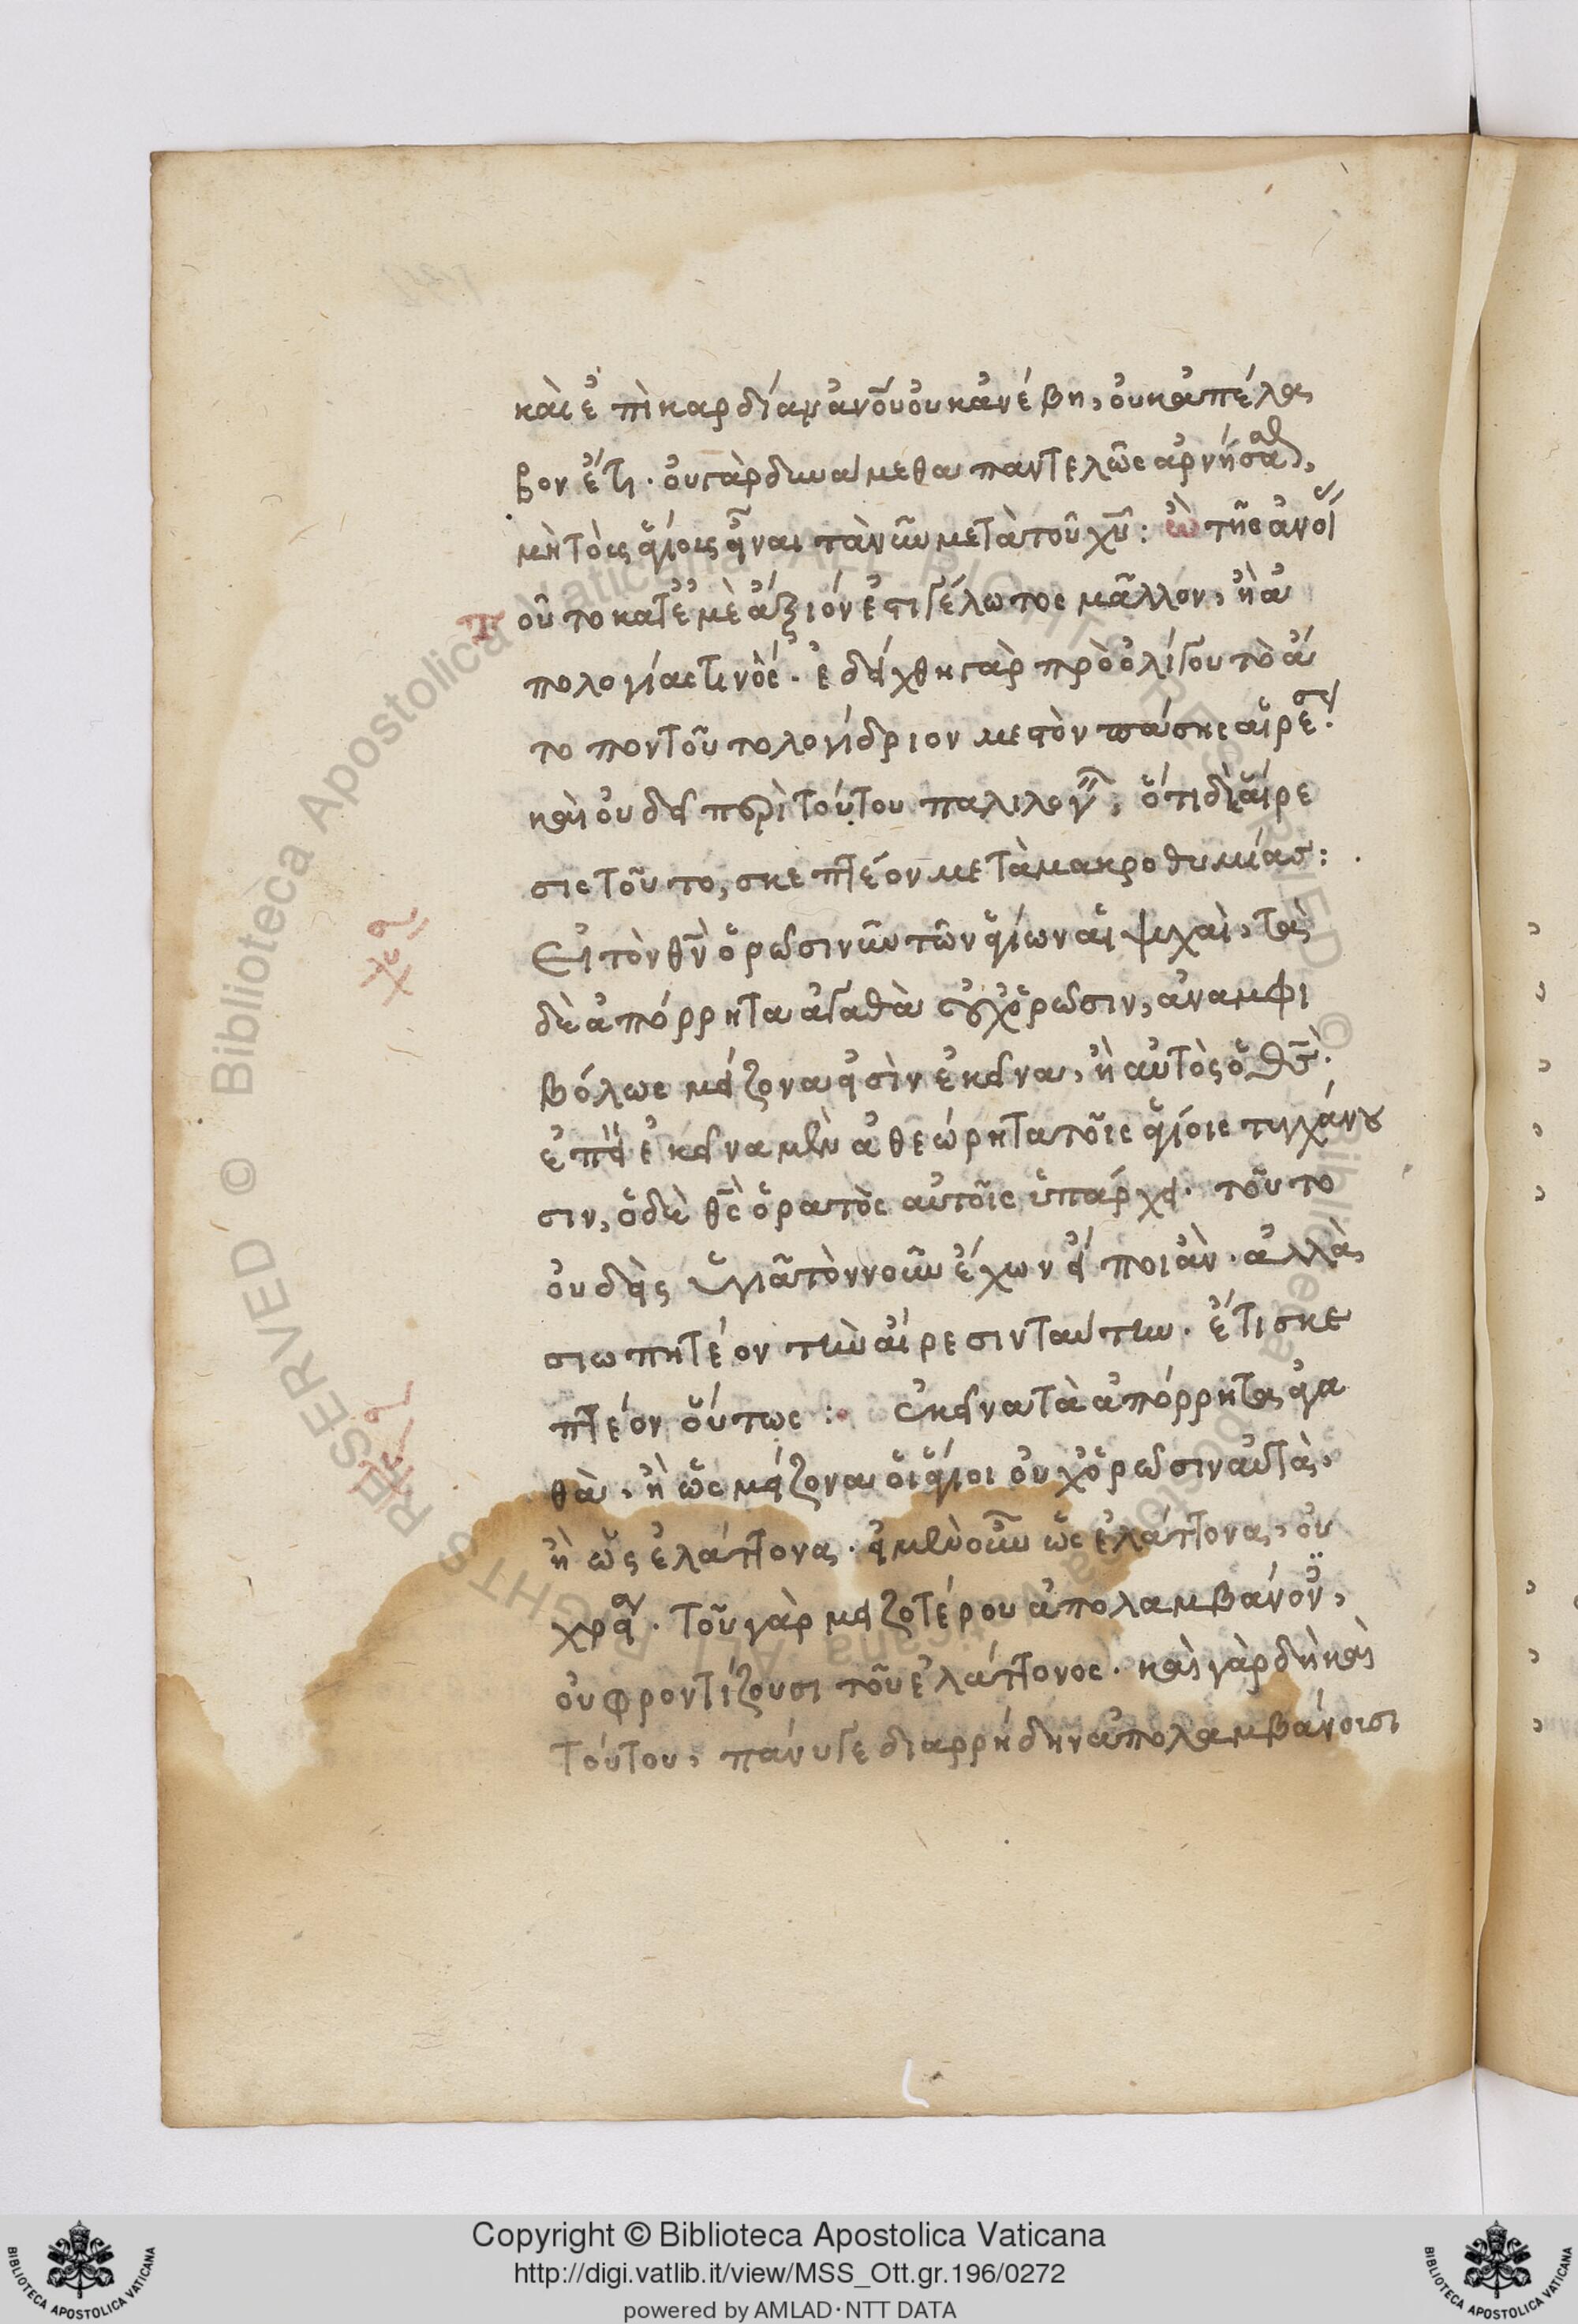 καὶ ἐπὶ καρδίαν ἀνου οὐκ ἀνέβη, οὐκ ἀπέλα
βον ἔτι· οὐ γὰρ δυναίμεθα παντελῶς ἀρνήσασθαι,
μὴ τοὺς ἁγίους εἶναι τανῦν μετὰ τοῦ χυ: ὢ τῆς ἀνοί
οὗτο κατ ἐμὲ ἄξιόν ἐστι γέλωτος μᾶλλον, ἢ ἀ
πολογίας τινός· ἐδείχθη γὰρ πρὸ ὀλίγου τὸ ἄ
τοπον τοῦτο λογίδριον μεστὸν πάσης αἱρέσεως·
καὶ οὐ δεῖ περὶ τούτου παλιλογεῖν, ὅτι δὲ αἵρε
σις τοῦτο, σκεπτέον μετὰ μακροθυμίας:
Εἰ τὸν θν ὁρῶσι νῦν τῶν ἁγίων αἱ ψυχαὶ, τὰ
δὲ ἀπόρρητα ἀγαθὰ οὐχ ὁρῶσιν, ἀναμφι
βόλως μείζονα εἰσὶν ἐκεῖνα, ἢ αὐτὸς ὁ θς·
ἐπεὶ ἐκεῖνα μὲν ἀθεώρητα τοῖς ἁγίοις τυγχάνου
σιν, ὁ δὲ θς ὁρατὸς αὐτοῖς ὑπάρχει· τοῦτο
οὐδεὶς ὑγιᾶ τὸν νοῦν ἔχων εἴποι ἂν· ἀλλὰ
σιωπητέον τὴν αἵρεσιν ταύτην· ἔτι σκε
πτέον οὕτως: ἐκεῖνα τὰ ἀπόρρητα ἀγα
θὰ, ἢ ὡς μείζονα οἱ ἅγιοι οὐχ ὁρῶσιν αὐτὰ,
ἢ ὡς ἐλάττονα· εἰ μὲν οὖν ὡς ἐλάττονα, οὐ
χρεία· τοῦ γὰρ μειζοτέρου ἀπολαμβάνοντες,
οὐ φροντίζουσι τοῦ ἐλάττονος· καὶ γὰρ δὴ καὶ
τούτου, πάνυ γε διαρρήδην ἀπολαμβάνουσι
Copyright © Biblioteca Apostolica Vaticana
http://digi.vatlib.it/view/MSS_Ott.gr.196/0272
powered by AMLAD·NTT DATA